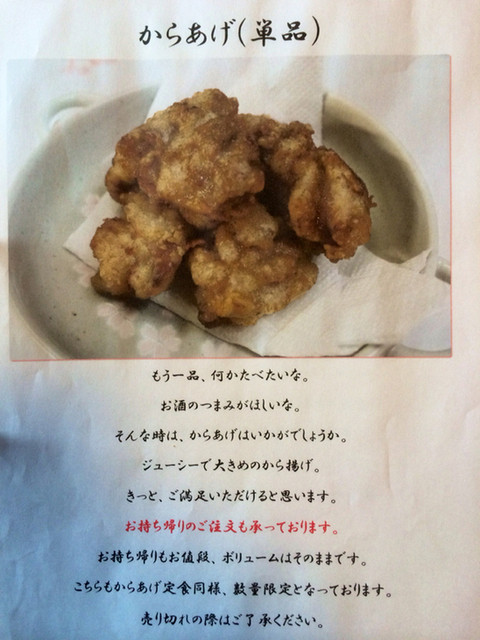 からあげ(単品)
もう一品、何かたべたいな。
お酒のつまみがほしいな。
そんな時は、からあげはいかがでしょうか。
ジューシーで大きめのから揚げ。
きっと、ご満足いただけると思います。
お持ち帰りのご注文も承っております。
お持ち帰りもお値段、ボリュームはそのままです。
こちらもからあげ定食同様、数量限定となっております。
売り切れの際はご了承ください。